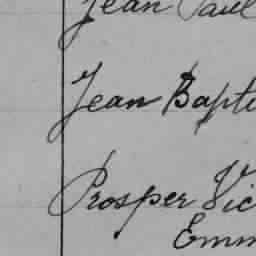 Jean Paul
Jean Bapti
Prosper Vic
Emm